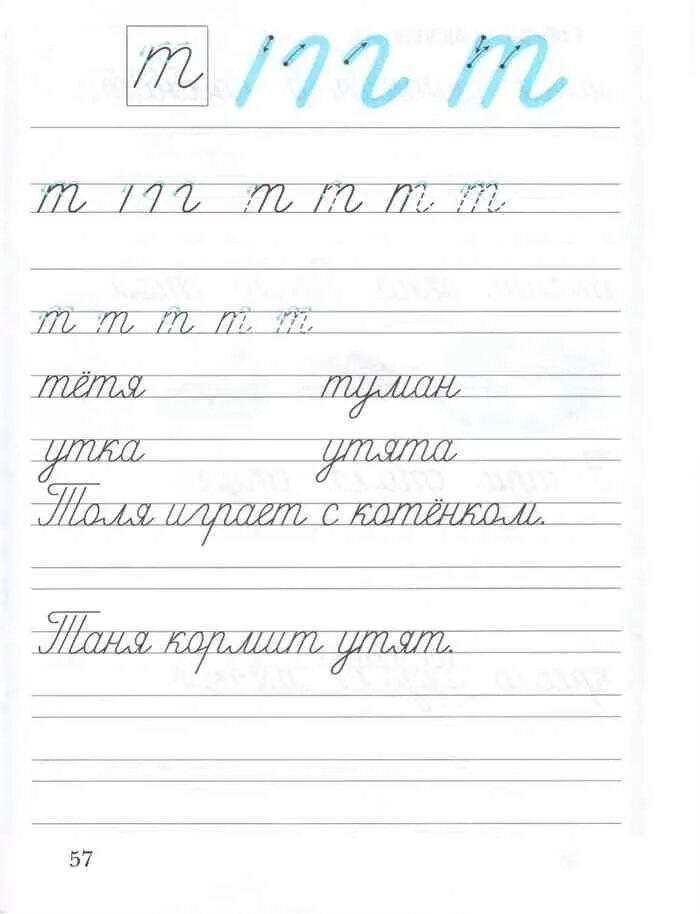 т т
т т т т т
т т т т т
тётя туман
утка утята
Толя играет с котёнком.
Таня кормит утят.
57